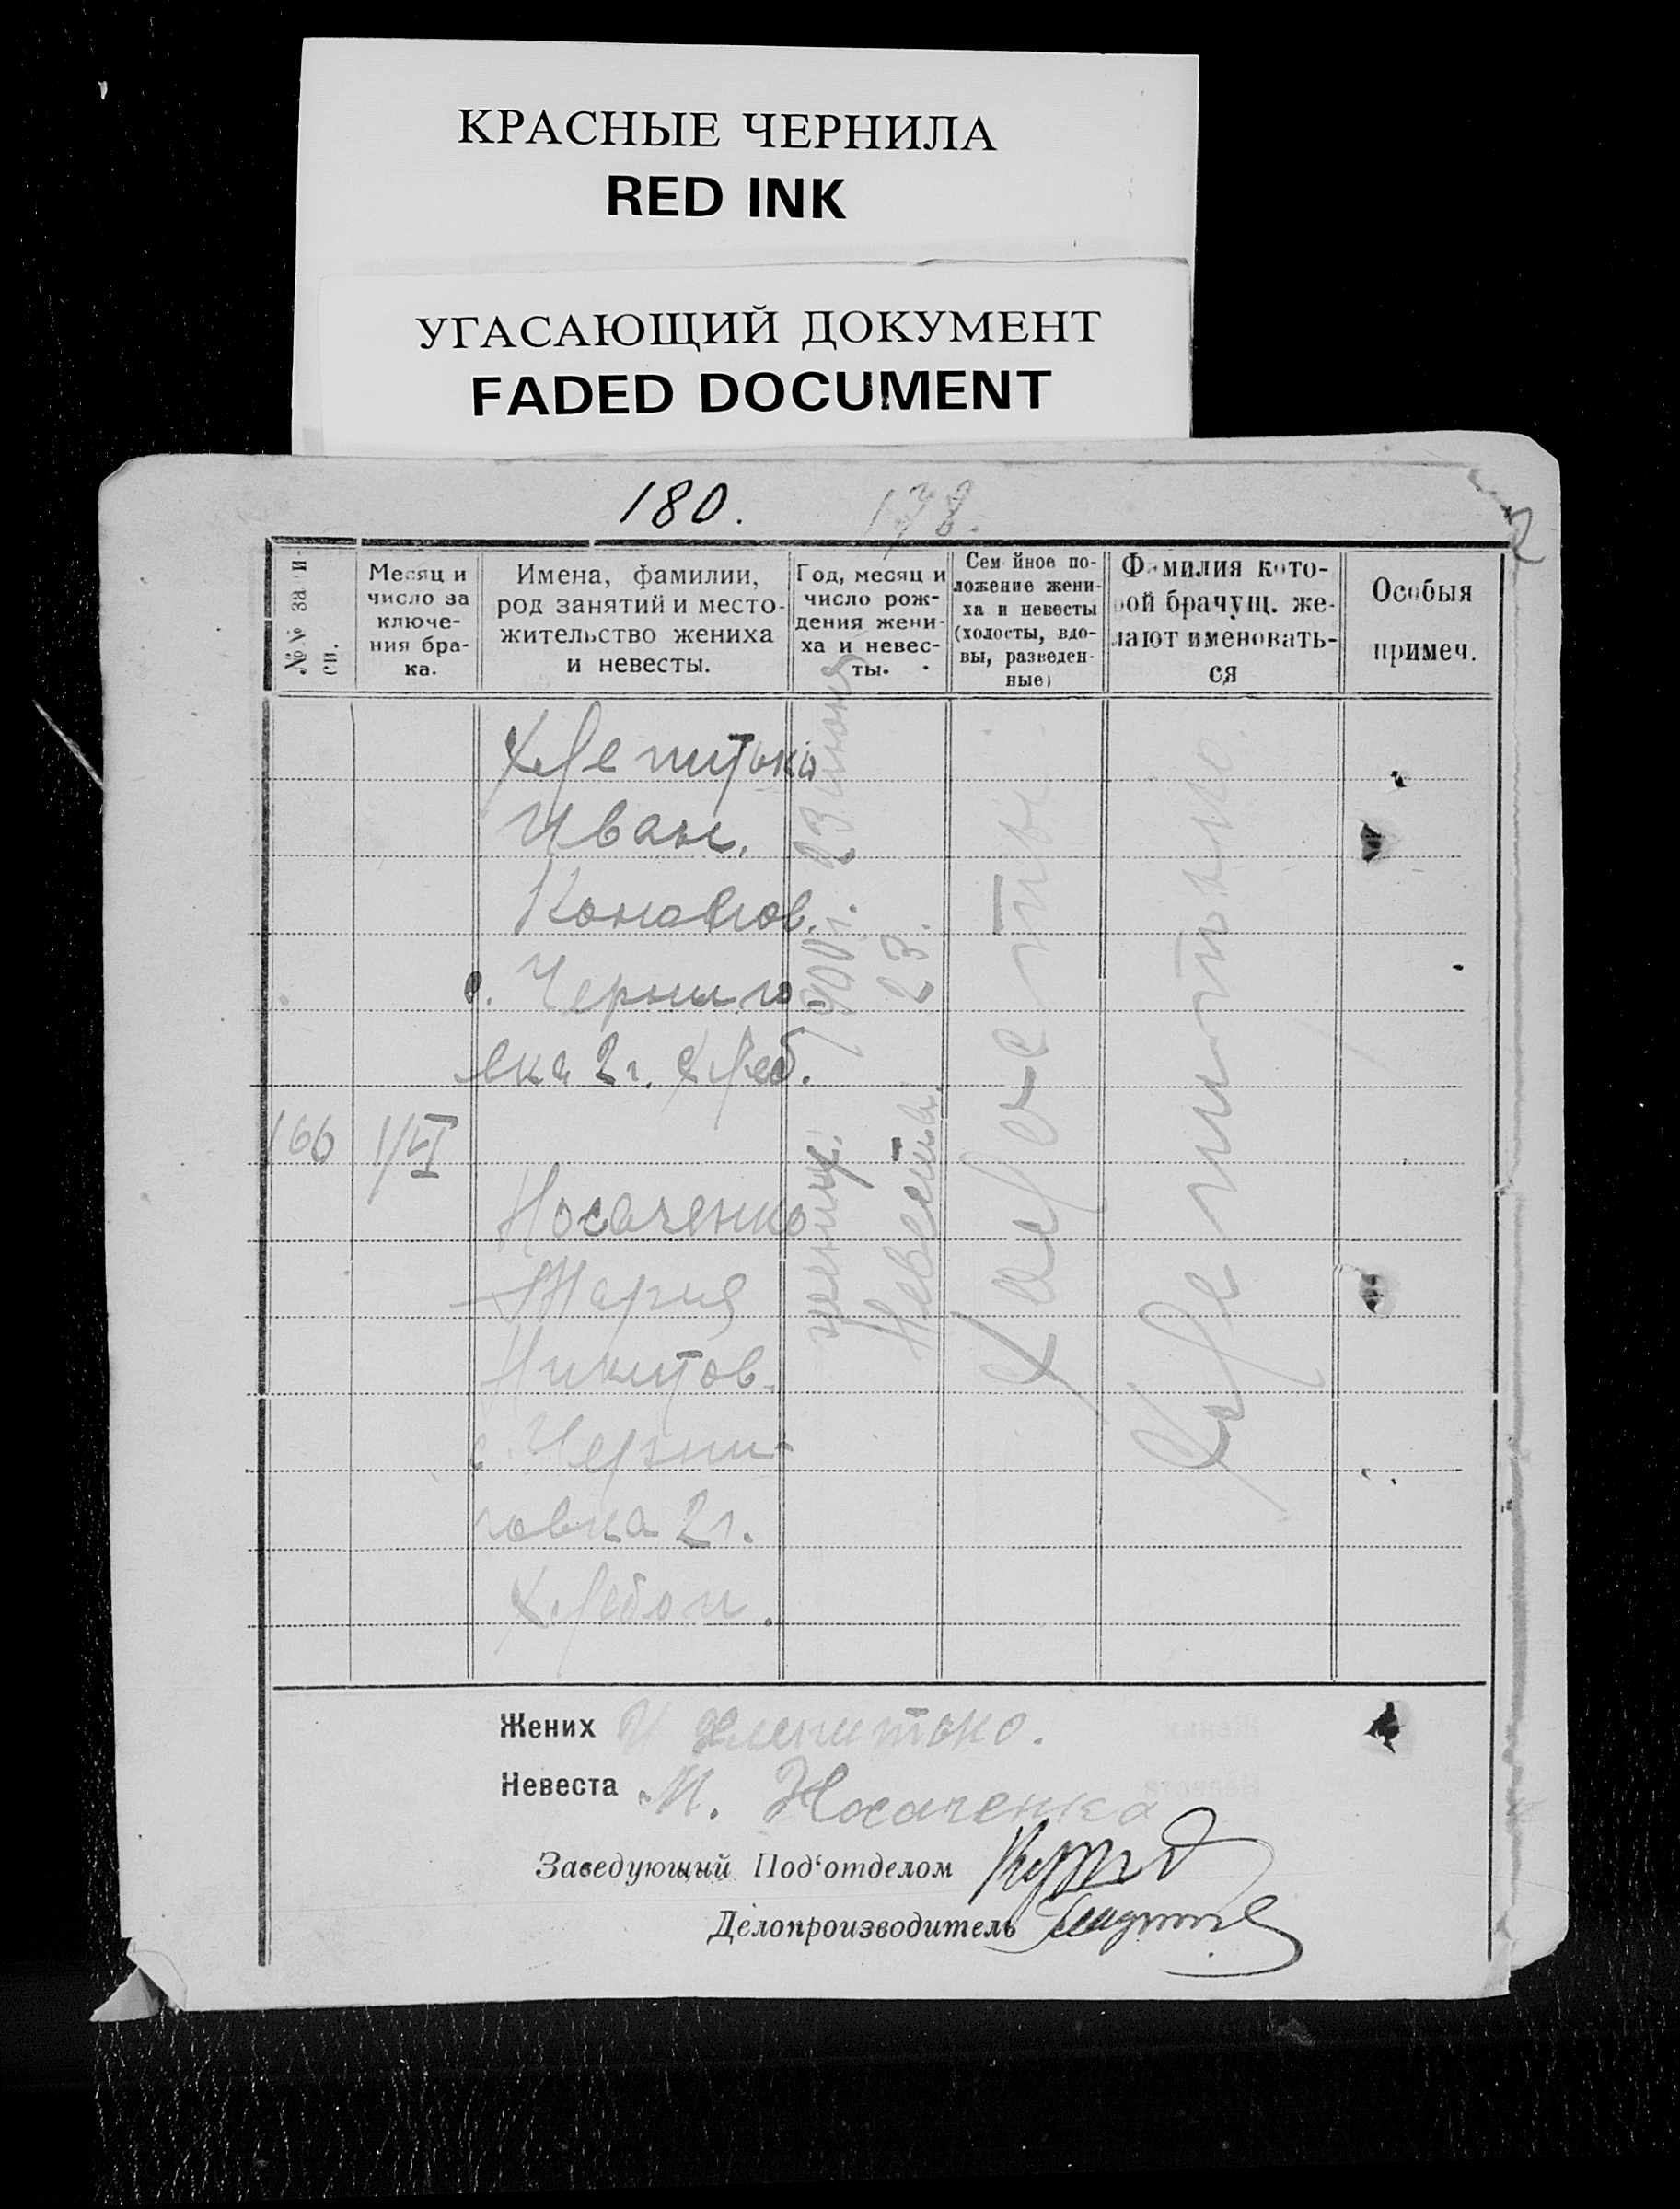 КРАСНЫЕ ЧЕРНИЛА
RED INK
УГАСАЮЩИЙ ДОКУМЕНТ
FADED DOCUMENT
180. 178.
2
№№ за и-
си.
Месяц и
число за
ключе-
ния бра-
ка.
Имена, фамилии,
род занятий и место-
жительство жениха
и невесты.
Год, месяц и
число рож-
дения жени-
ха и невес-
ты.
Сем йное по-
ложение жени-
ха и невесты
(холосты, вдо-
вы, разведен-
ные)
Фамилия кото-
рой брачущ. же-
лают именовать-
ся
Особыя
примеч.
Хлепитько
Иван.
с. Черниго
вка 2г. хлеб.
166 1/VI
Носаченко
Мария
Никитов.
с. Черни-
говка 2г.
Хлебоп.
Жених 1900 г. 23 июня
Невеста 23.
Холосты
Хлепитько.
Жених И Хлепитько.
Невеста М. Носаченко
Заведующий Под'отделом
Делопроизводитель